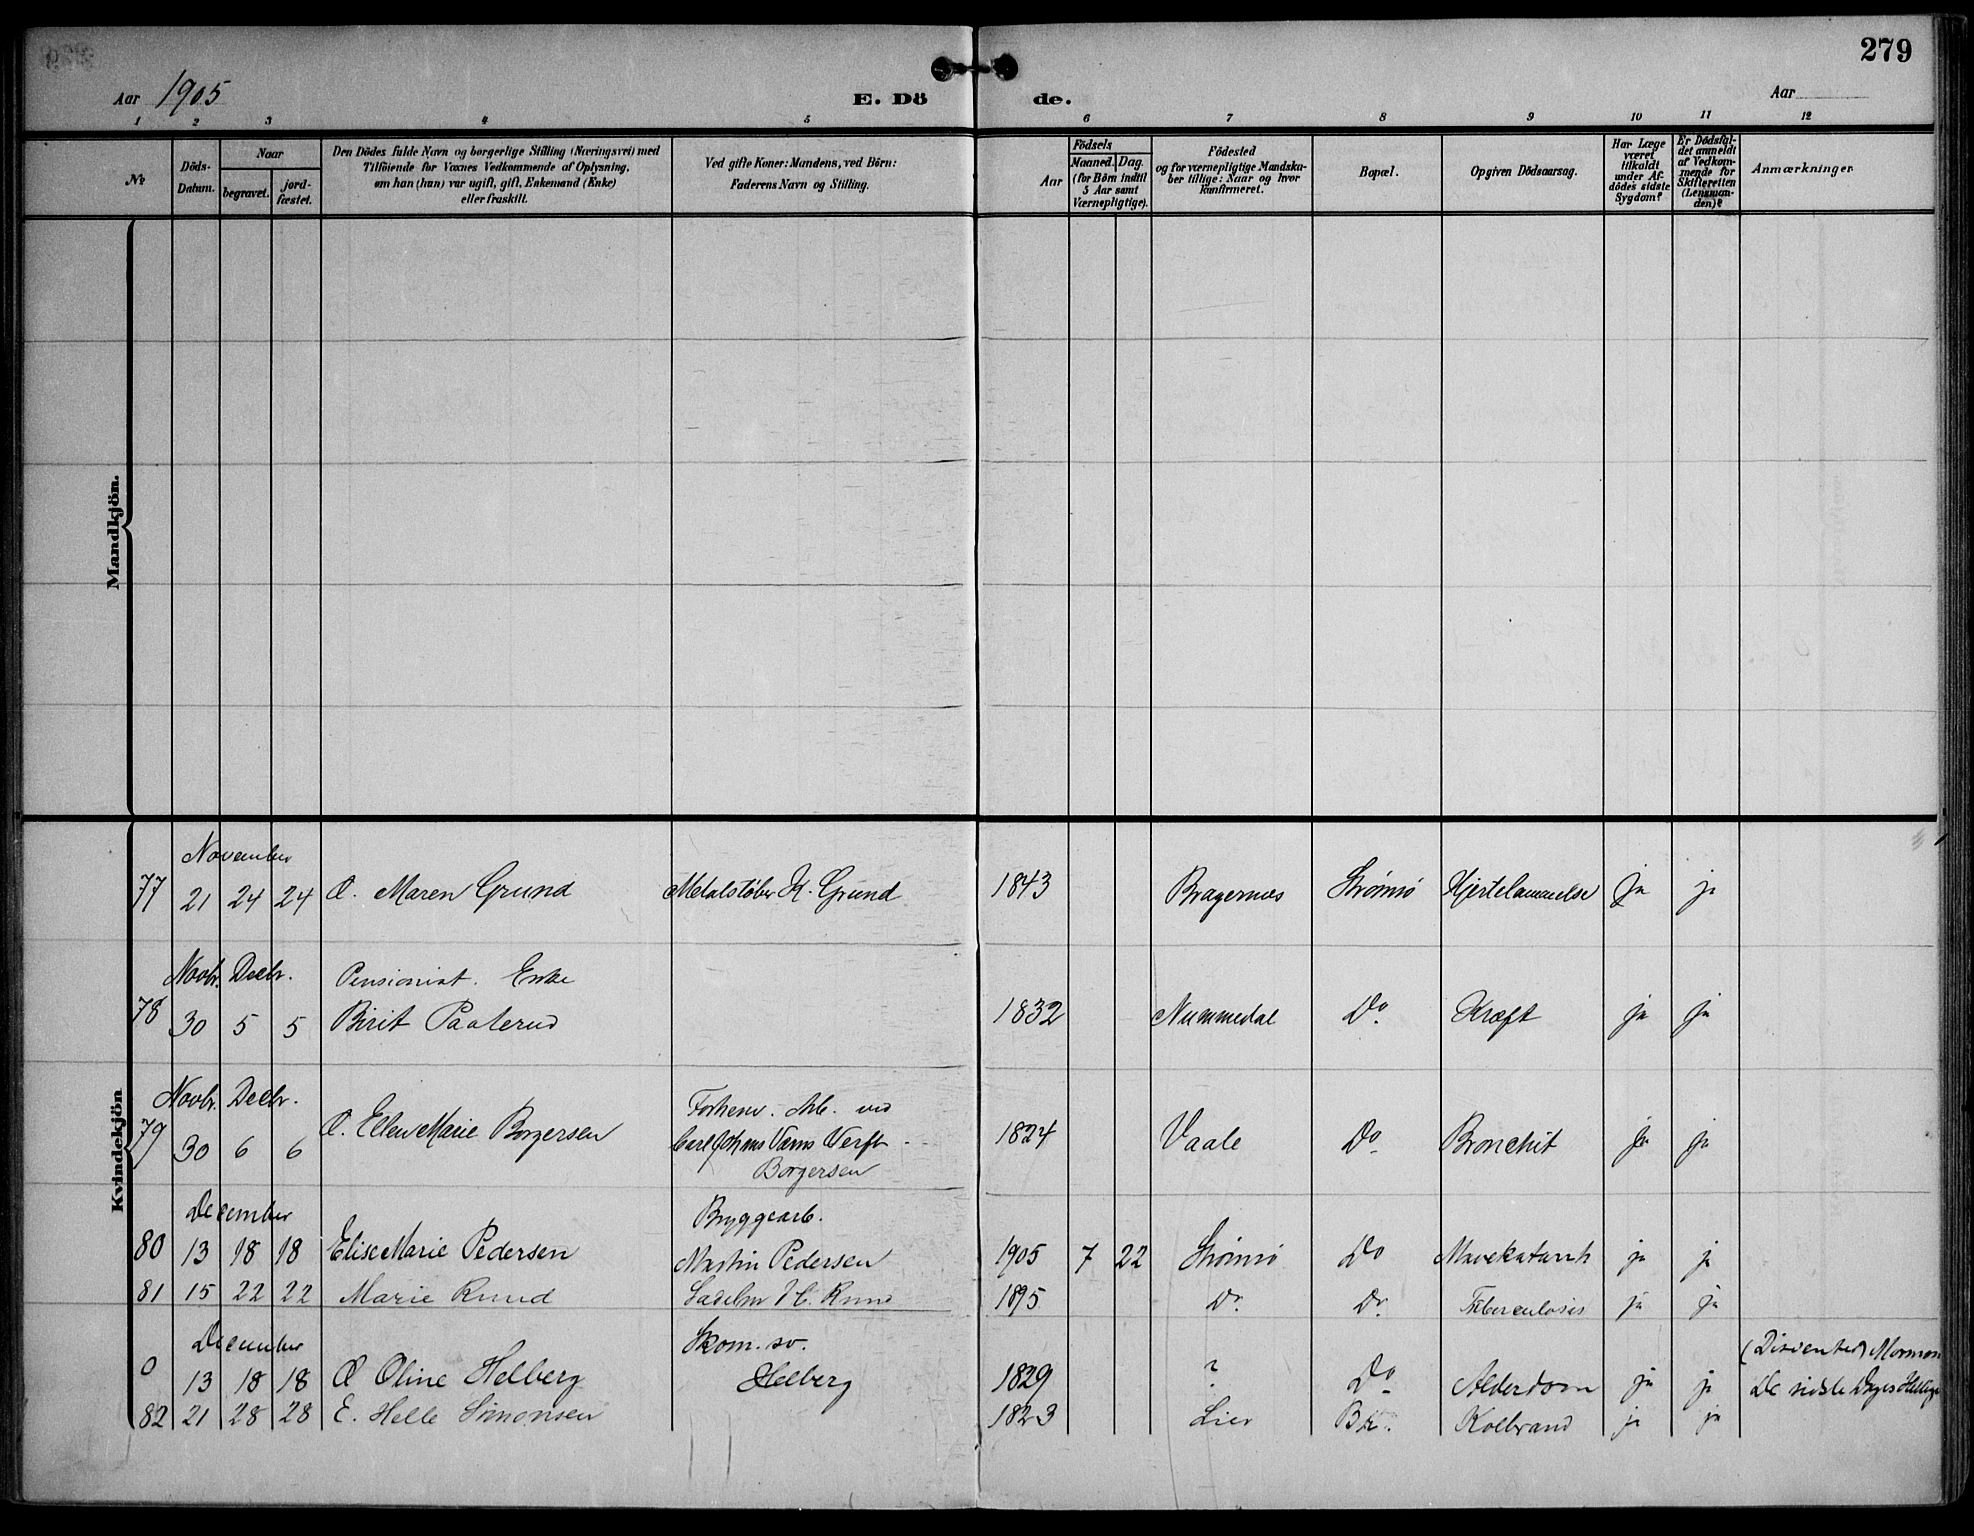 279
Aar 1905 E. Dö de. Aar
1 2 3 4 5 6 7 8 9 10 11 12
№
Döds-
Datum.
Naar
begravet.
jord-
fæstet.
Den Dödes fulde Navn og borgerlige Stilling (Næringsvei) med
Tilföiende for Voxnes Vedkommende af Oplysning,
om han (hun) var ugift, gift, Enkemand (Enke)
eller fraskilt.
Ved gifte Koner: Mandens, ved Börn:
Faderens Navn og Stilling.
Födsels
Aar
Maaned. Dag.
(for Börn indtil
5 Aar samt
Værnepligtige).
Födested
og for værnepligtige Mandska-
ber tillige: Naar og hvor
konfirmeret.
Bopæl.
Opgiven Dödsaarsag.
Har Læge
været
tilkaldt
under Af-
dödes sidste
Sygdom?
Er Dödsfal-
det anmeldt
af Vedkom-
mende for
Skifteretten
(Lensman-
den)?
Anmærkninger
Mandkjön.
Kvindekjön
November
77 21 24 24 Maren Grund Metalstøber K. Grund 1843 Bragernes Strømsø Hjertelammelse ja ja
Novbr. Decbr. Pensionist. Enke
78 30 5 5 Birit Paalerud 1832 Nummedal Do Kræft ja ja
Novbr. Decbr. Forhenv. Arb. ved
79 30 6 6 Ellen Marie Borgersen Carl Johans Værns Verft 1824 Vaale Do Bronchit ja ja
Borgersen
December Bryggearb.
80 13 18 18 Elise Marie Pedersen Martin Pedersen 1905 7 22 Strømsø Do Mavekatarrh ja ja
81 15 22 22 Marie Rund Sadelm Rund 1895 Do Do Tuberculosis ja ja
December Skom. sv. (Dissenter) Mormon
0 13 18 18 Oline Helberg Helberg 1829 ? Do Alderdom ja ja De sidste Dages Hellige
82 21 28 28 E. Helle Simonsen 1823 Lier Br. Kolbrand ja ja